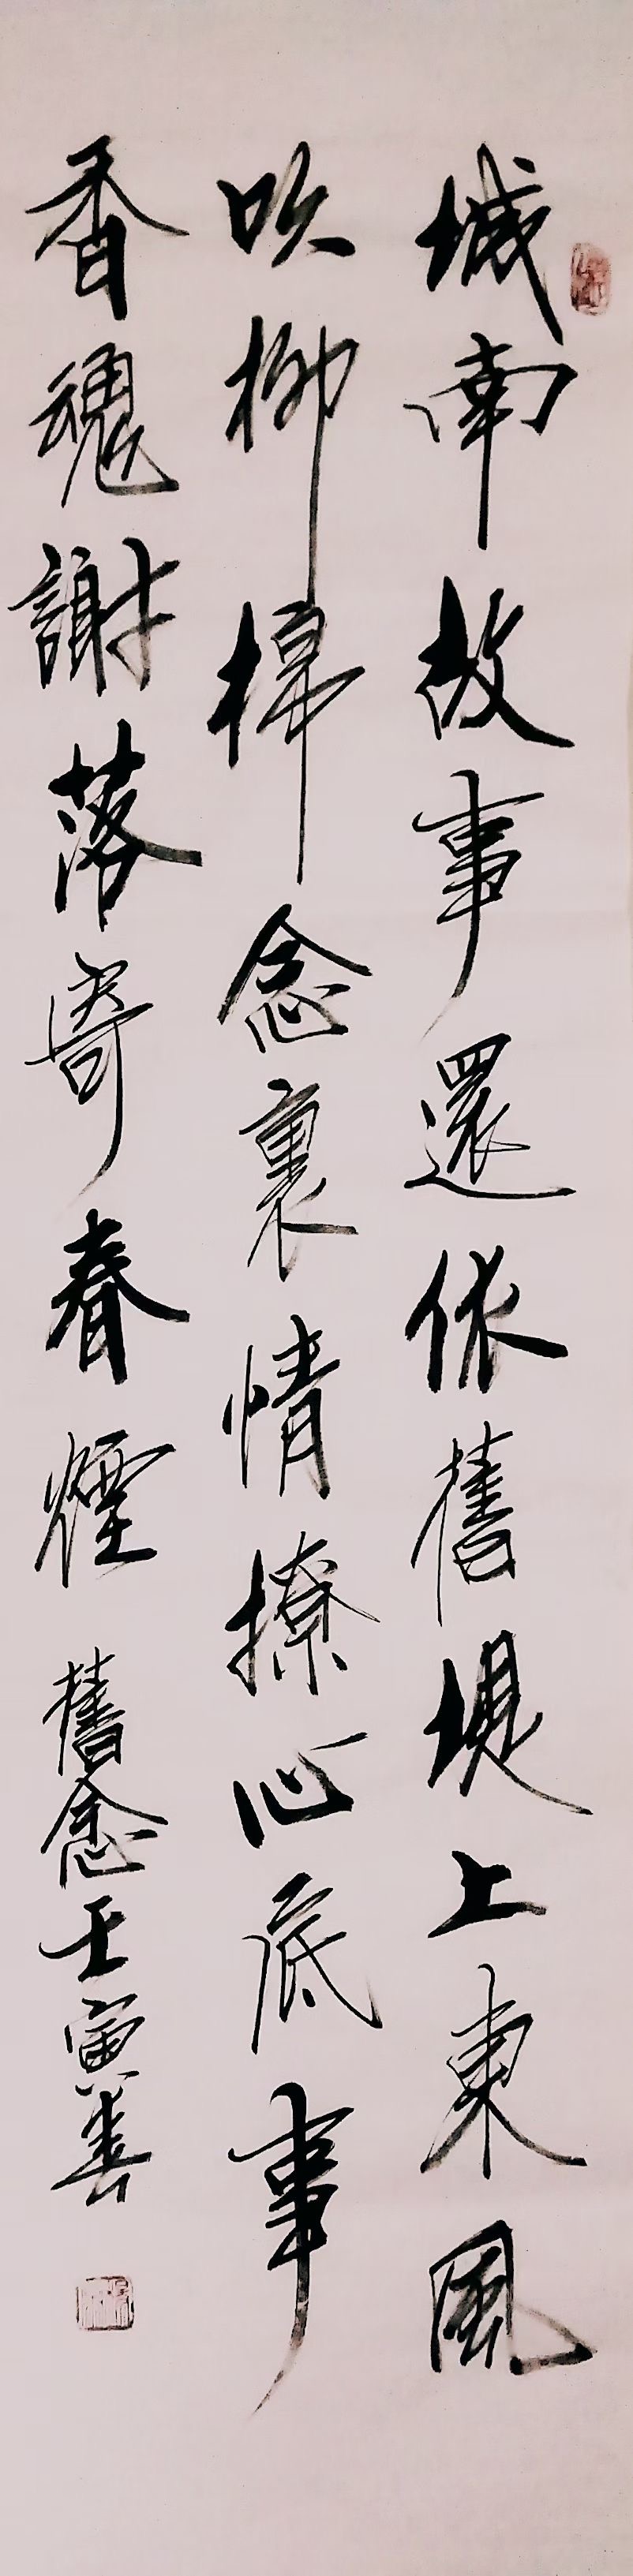 城南故事還依舊堤上東風
吹柳棉念裏情撩心底事
香魂謝落寄春煙 舊念壬寅春